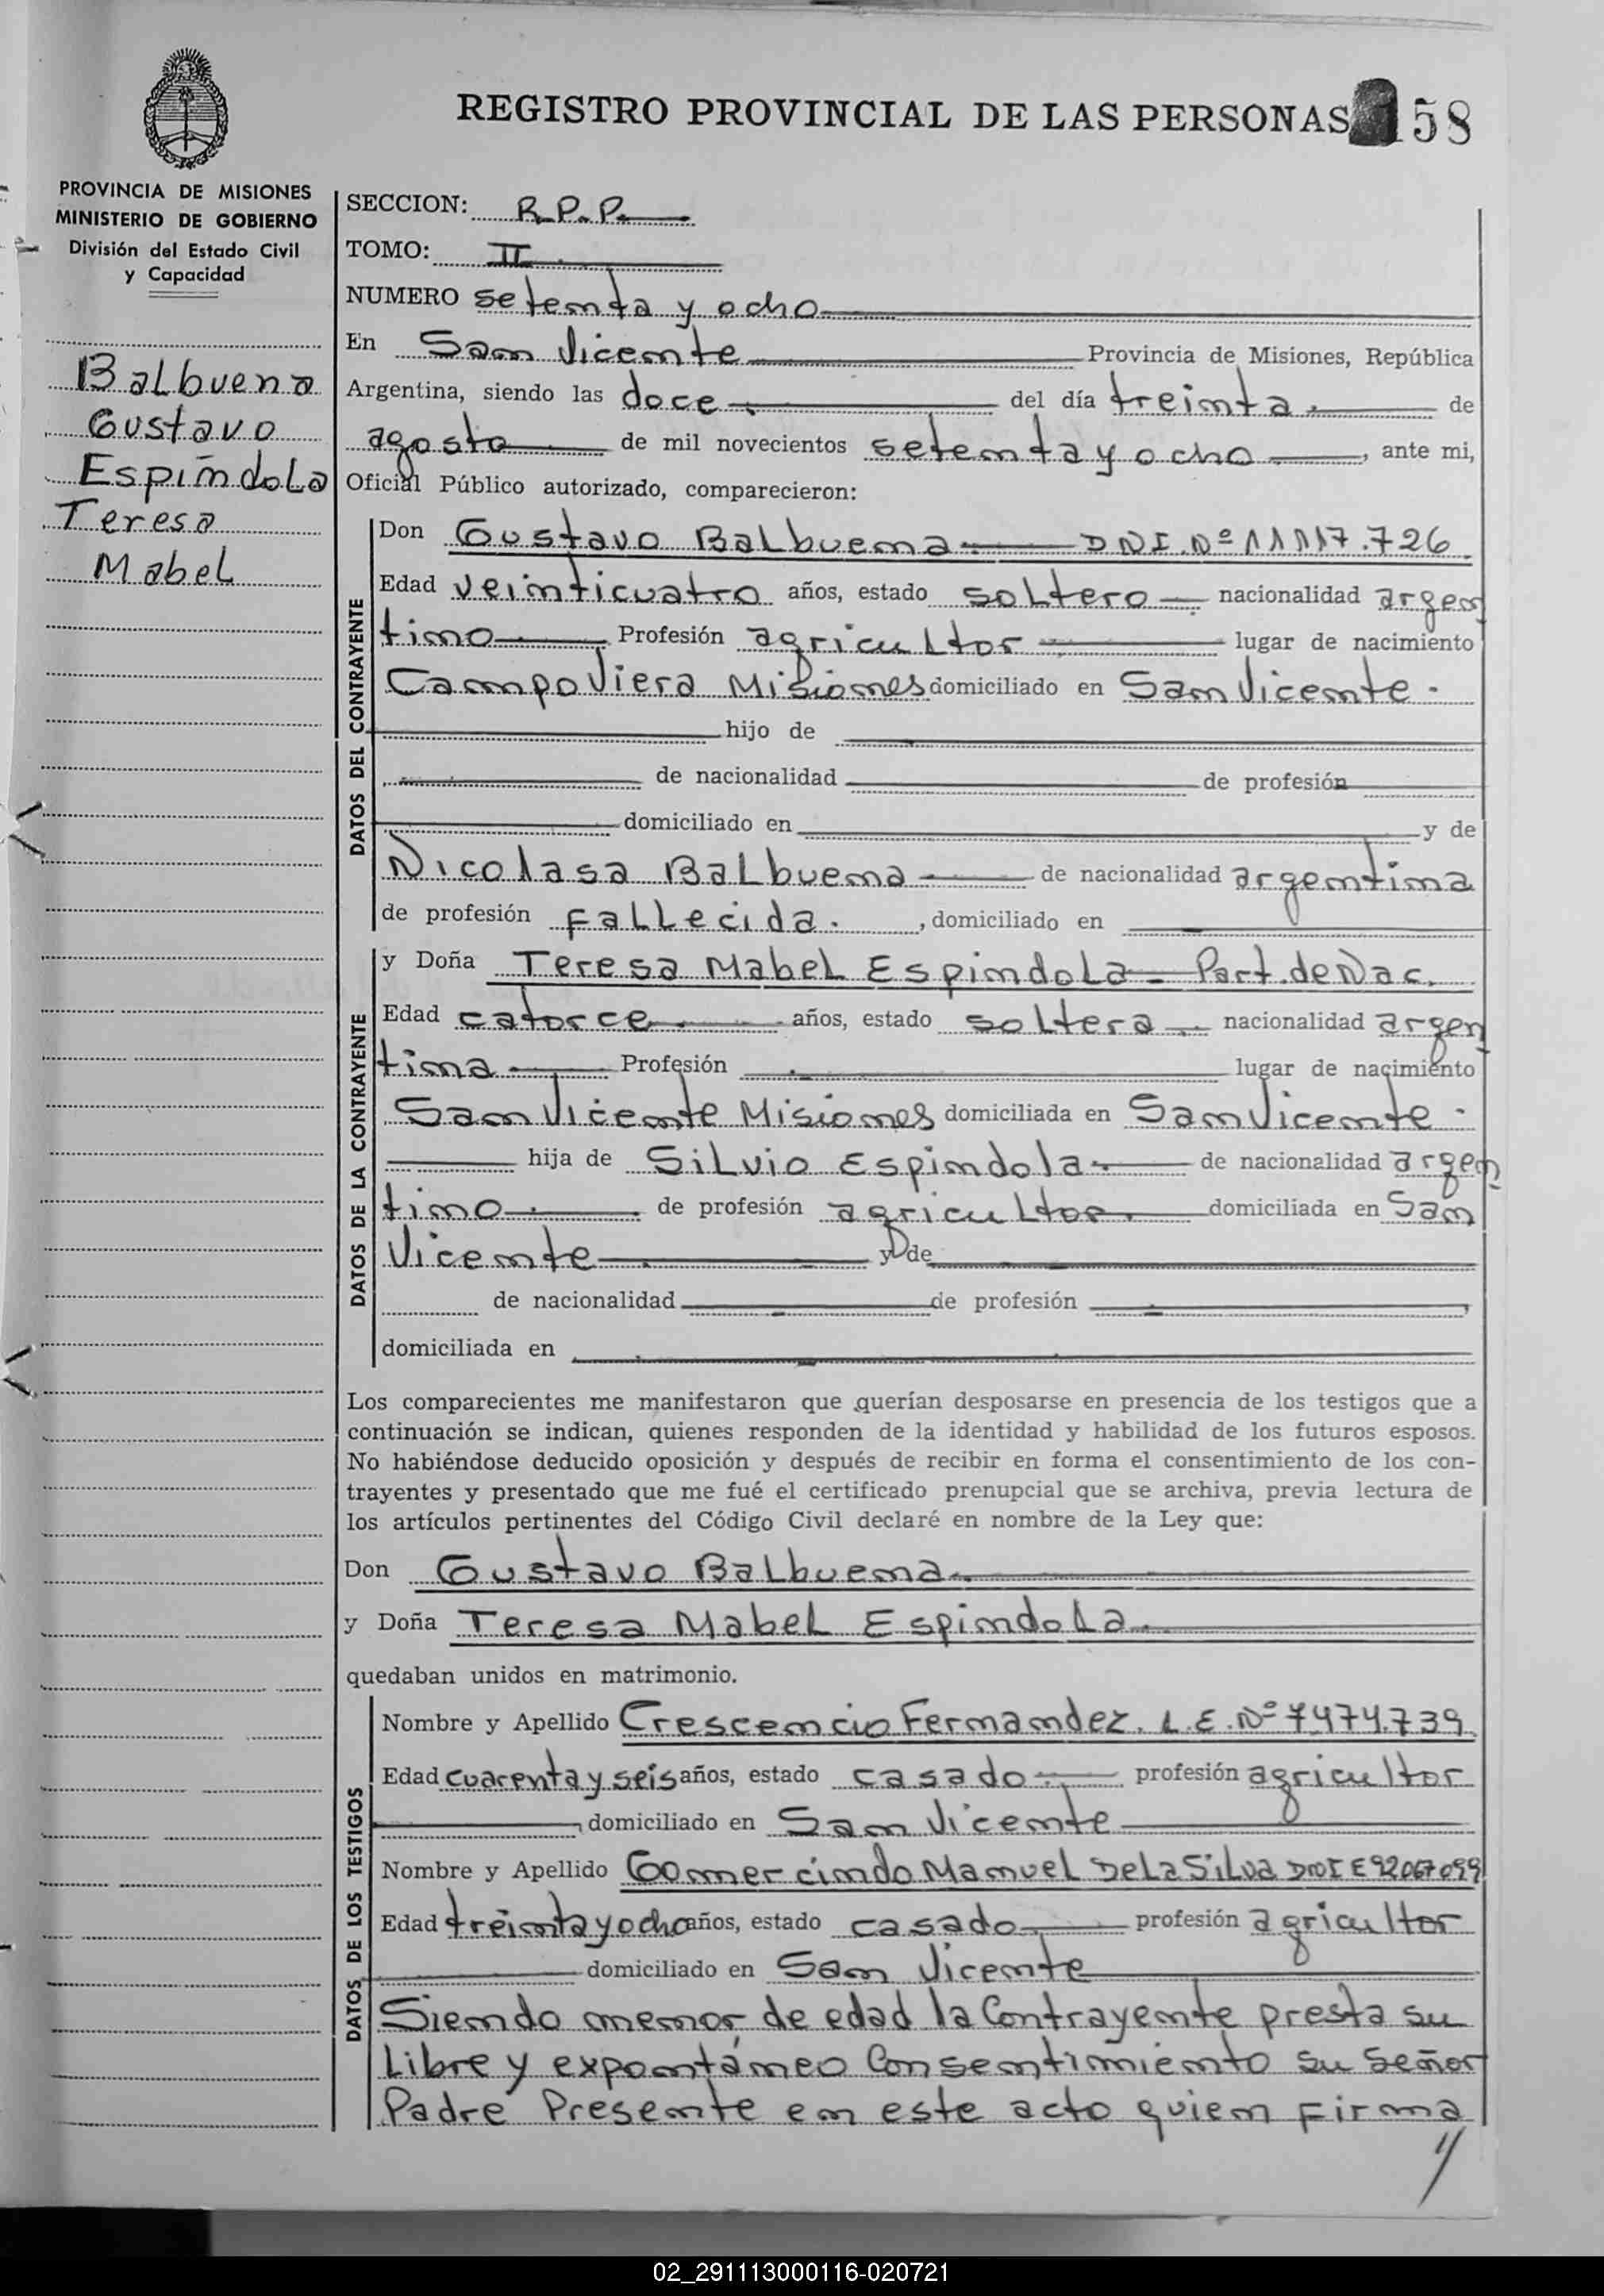 REGISTRO PROVINCIAL DE LAS PERSONAS 158
PROVINCIA DE MISIONES
MINISTERIO DE GOBIERNO
División del Estado Civil
y Capacidad
Balbuena
Gustavo
Espíndola
Teresa
Mabel
SECCION: R.P.P.
TOMO: II
NUMERO setenta y ocho
En San Vicente Provincia de Misiones, República
Argentina, siendo las doce del día treinta de
agosto de mil novecientos setenta y ocho, ante mi,
Oficial Público autorizado, comparecieron:
DATOS DEL CONTRAYENTE
Don Gustavo Balbuena DNI. Nº 11117.726
Edad veinticuatro años, estado soltero nacionalidad argen
tino Profesión agricultor lugar de nacimiento
Campo Viera Misiones domiciliado en San Vicente.
hijo de
de nacionalidad de profesión
domiciliado en y de
Nicolasa Balbuena de nacionalidad argentina
de profesión fallecida. , domiciliado en
DATOS DE LA CONTRAYENTE
y Doña Teresa Mabel Espindola - Part. de Nac.
Edad catorce años, estado soltera nacionalidad argen
tina Profesión lugar de nacimiento
San Vicente Misiones domiciliada en San Vicente.
hija de Silvio Espindola de nacionalidad argen
tino de profesión agricultor. domiciliada en San
Vicente y de
de nacionalidad de profesión ,
domiciliada en
Los comparecientes me manifestaron que querían desposarse en presencia de los testigos que a
continuación se indican, quienes responden de la identidad y habilidad de los futuros esposos.
No habiéndose deducido oposición y después de recibir en forma el consentimiento de los con-
trayentes y presentado que me fué el certificado prenupcial que se archiva, previa lectura de
los artículos pertinentes del Código Civil declaré en nombre de la Ley que:
Don Gustavo Balbuena
y Doña Teresa Mabel Espindola
quedaban unidos en matrimonio.
DATOS DE LOS TESTIGOS
Nombre y Apellido Crescencio Fernandez. L.E. Nº 7474.739
Edad cuarenta y seis años, estado casado profesión agricultor
, domiciliado en San Vicente
Nombre y Apellido Gomercindo Manuel De La Silva DNI E 92067099
Edad treinta y ocho años, estado casado profesión agricultor
domiciliado en San Vicente
Siendo menor de edad la Contrayente presta su
Libre y expontáneo Consentimiento su señor
Padre Presente en este acto quien firma
//
02_291113000116-020721